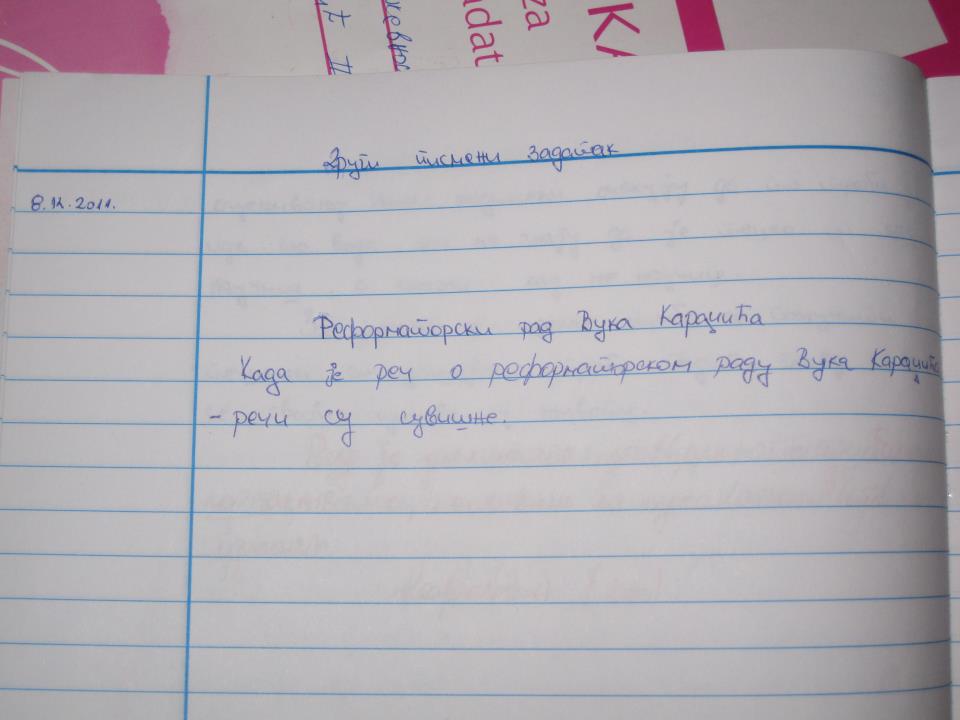 KA
za
adat
Други писмени задатак
8.12.2011.
Реформаторски рад Вука Караџића
Када је реч о реформаторском раду Вука Караџића
- речи су сувишне.